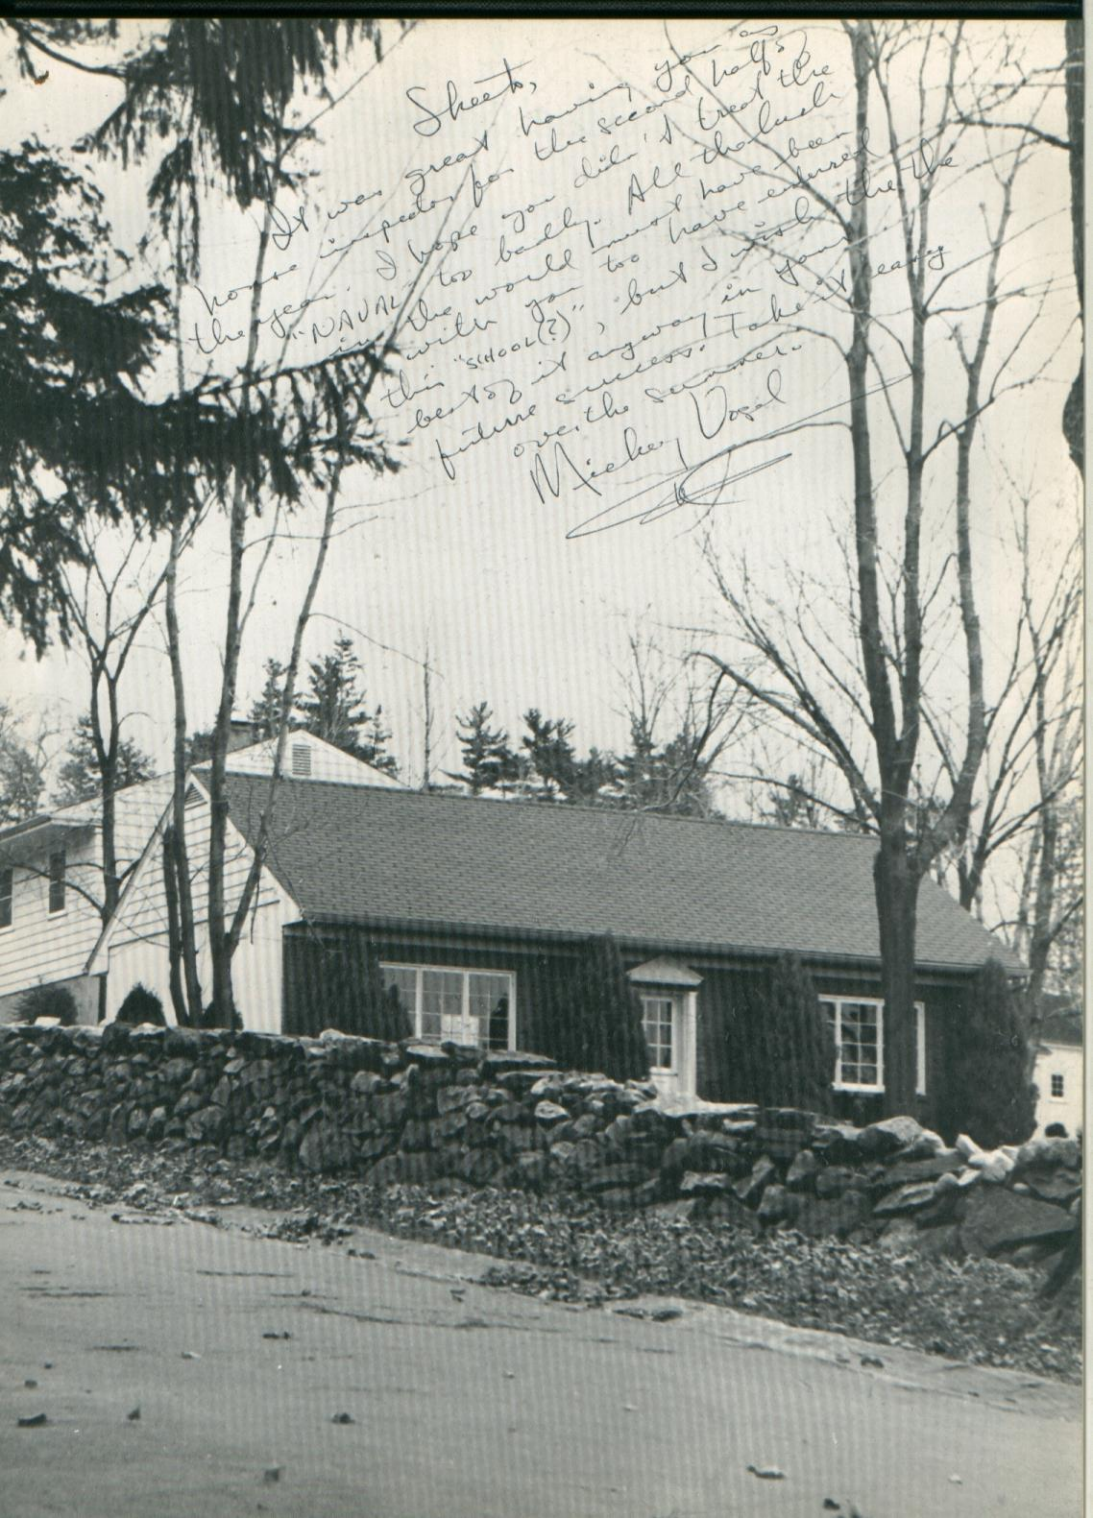 Skeets,
It was great having you as
house inspector for the second half of
the year. I hope you didn't treat the
"NAVAL" too badly. All the luck
in the world must have been
with you to have endured
this "SCHOOL(?)", but I wish the the
best of it anyway in your
future success. Take it easy
over the summer.
Mickey Vogel